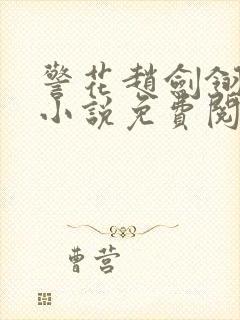 警花趙劍翎
小說免費閱
曹营